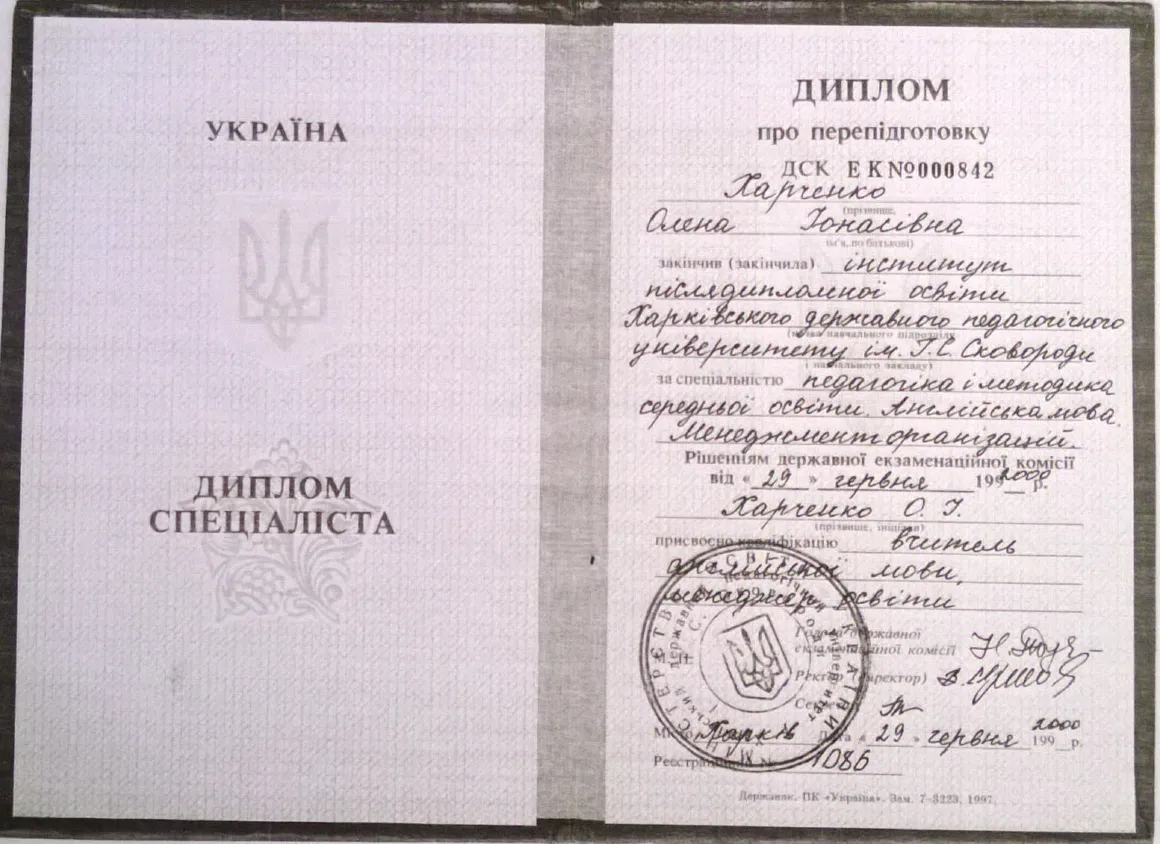 УКРАЇНА
ДИПЛОМ
СПЕЦІАЛІСТА
ДИПЛОМ
про перепідготовку
ДСК ЕК№000842
Харченко
(прізвище,
Олена Іонасівна
ім'я, по батькові)
закінчив (закінчила) інститут
післядипломної освіти
Харківського державного педагогічного
(назва навчального підрозділу
університету ім. Г.С. Сковороди
навчального закладу)
за спеціальністю педагогіка і методика
середньої освіти. Англійська мова.
Менеджмент організацій.
Рішенням державної екзаменаційної комісії
від « 29 » червня 199 2000 р.
Харченко О. І.
(прізвище, ініціали)
присвоєно кваліфікацію вчитель
англійської мови,
менеджер освіти
Голова державної
екзаменаційної комісії
М.П.
Ректор (директор)
Секретар
Місто Харків Дата « 29 » червня 199 2000 р.
Реєстраційний № 1086
Держзнак. ПК «Україна». Зам. 7-3223, 1997.